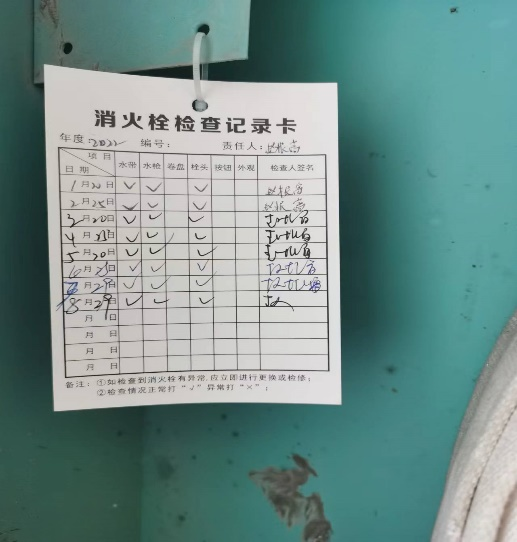 消火栓检查记录卡
年度: 2022 编号: 责任人:
项目 日期 水带 水枪 卷盘 栓头 按钮 外观 检查人签名
1月20日 ✓ ✓ ✓
2月25日 ✓ ✓ ✓
3月20日 ✓ ✓ ✓
4月 日 ✓ ✓ ✓
5月20日 ✓ ✓ ✓
6月 日 ✓ ✓ ✓
月29日 ✓ ✓ ✓
8月29日 ✓ ✓ ✓
月 日
月 日
月 日
月 日
备注: ①如检查到消火栓有异常,应立即进行更换或检修;
②检查情况正常打“√”异常打“×”;